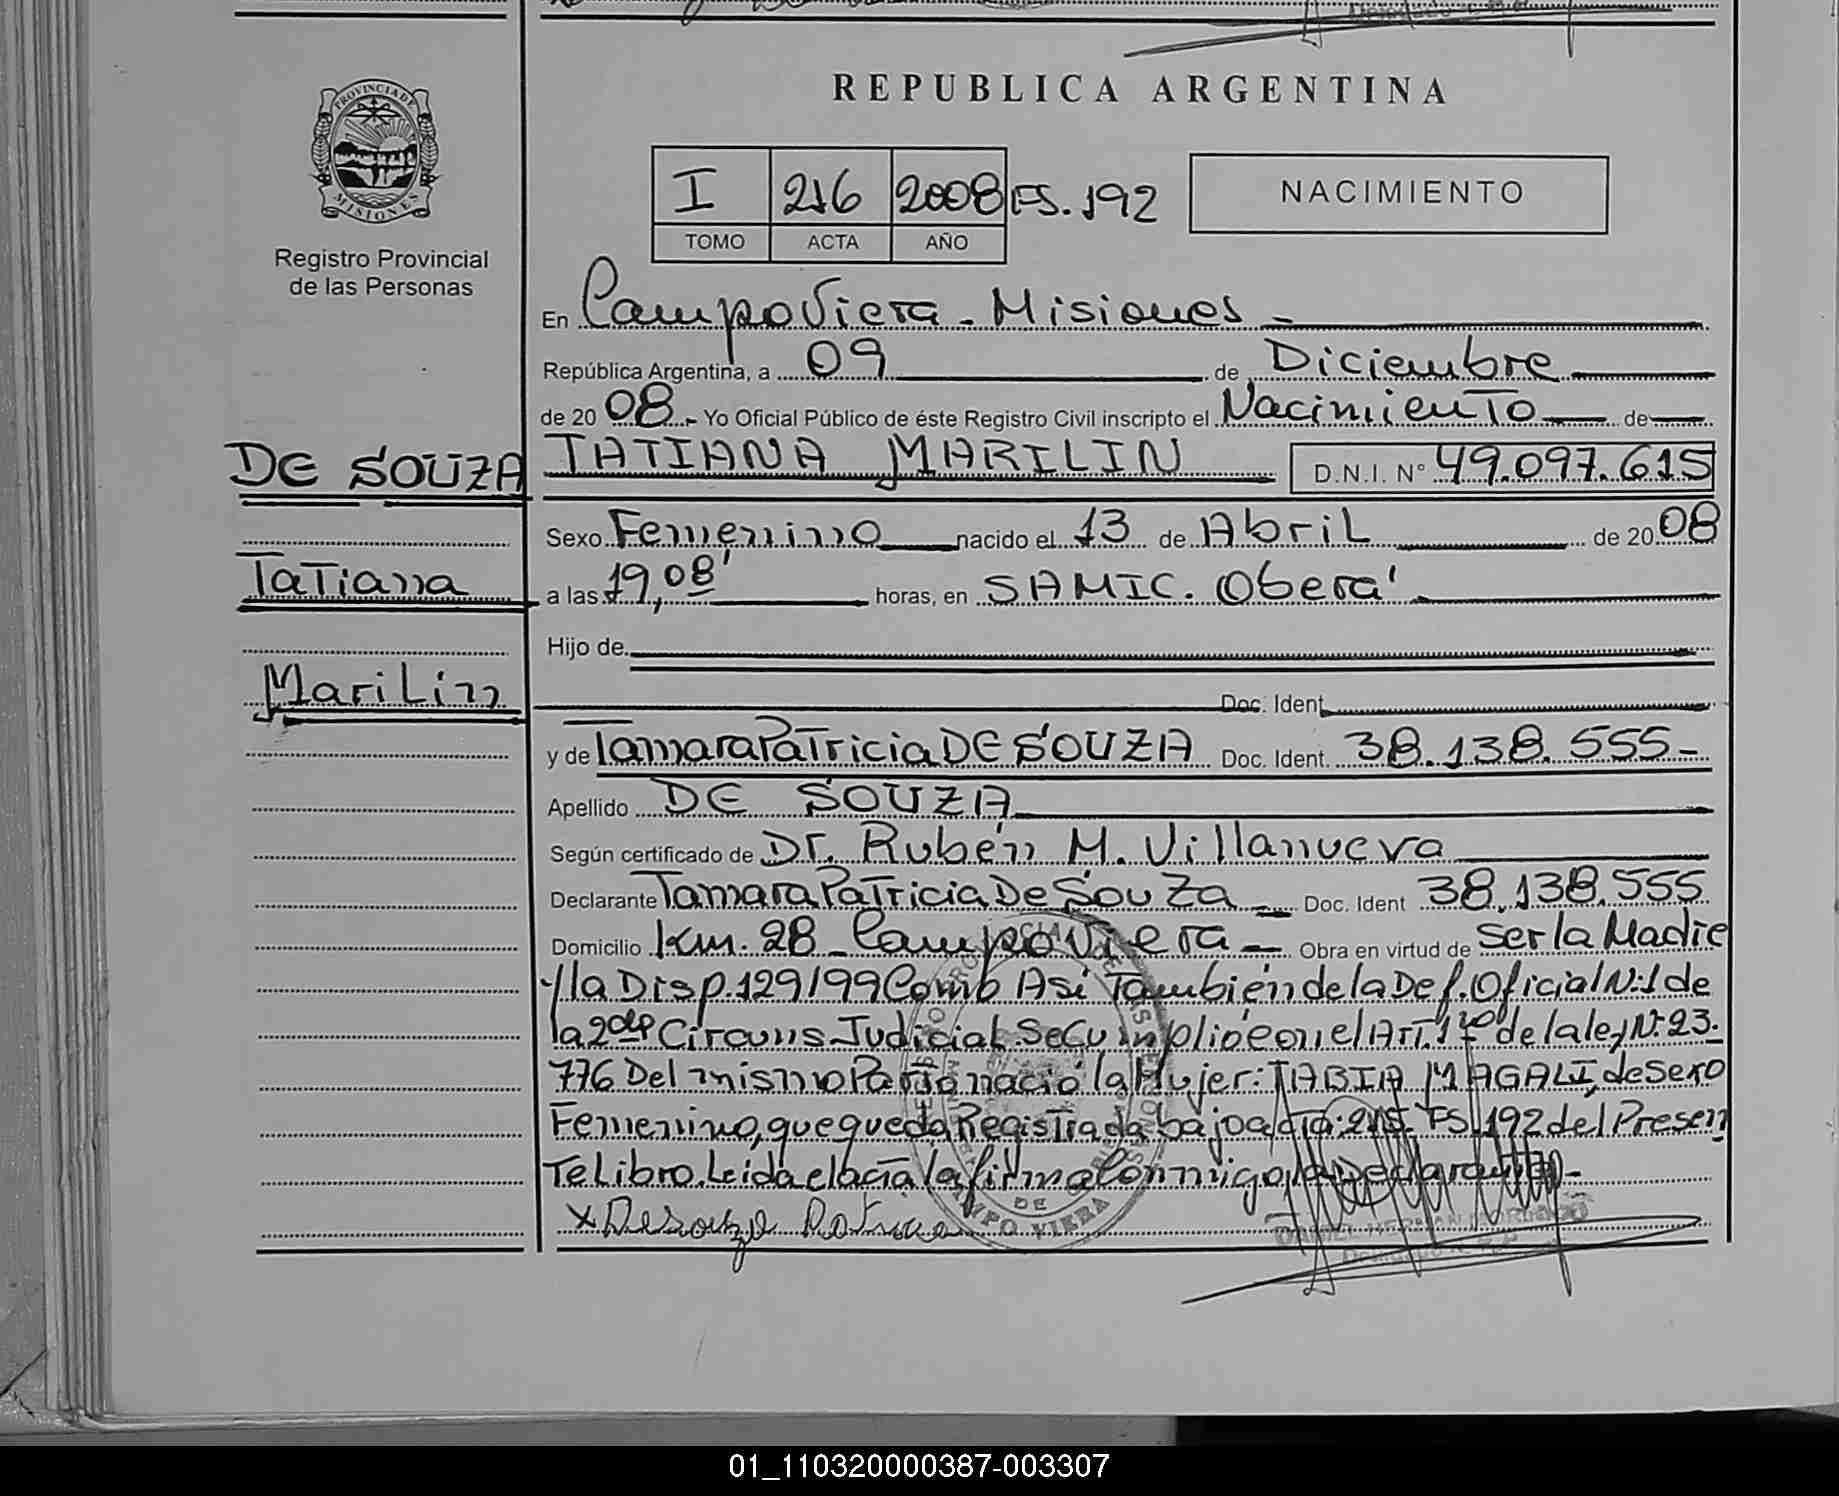 REPUBLICA ARGENTINA
PROVINCIA DE
MISIONES
Registro Provincial
de las Personas
I 216 2008 FS. 192
TOMO ACTA AÑO
NACIMIENTO
En Campo Viera - Misiones -
República Argentina, a 09 de Diciembre
de 20 08 - Yo Oficial Público de éste Registro Civil inscripto el Nacimiento de
DE SOUZA TATIANA MARILIN D.N.I. N° 49.097.615
Sexo Femenino nacido el 13 de Abril de 20 08
Tatiana a las 19,08' horas, en SAMIC. Oberá
Hijo de
Marilin Doc. Ident
y de Tamara Patricia DE SOUZA Doc. Ident. 38.138.555-
Apellido DE SOUZA
Según certificado de Dr. Rubén M. Villanueva
Declarante Tamara Patricia De Souza - Doc. Ident 38.138.555
Domicilio Km. 28 - Campo Viera - Obra en virtud de ser la Madre
y la Disp. 129/99 Como Asi También de la Def. Oficial N:1 de
la 2da Circuns Judicial. Se Cumplió con el Art. 1ro de la ley N: 23.
776 Del mismo Parto nació la Mujer: TABIA MAGALI, de sexo
Femenino, que queda Registrada bajo acta: 215. FS. 192 del Presen
Te Libro. Leida el acta la firma Conmigo la Declarante -
x Desouza Patricia
DE
CAMPO VIERA
01_110320000387-003307